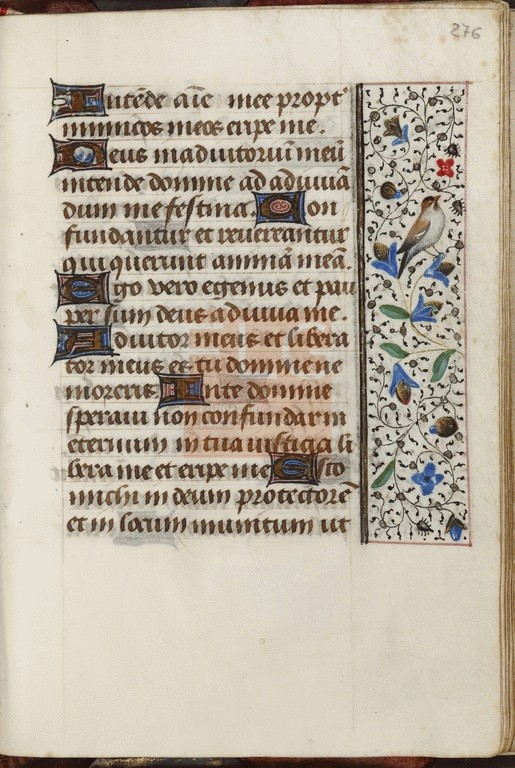 276
Intēde aīe mee propt'
inimicos meos eripe me.
Deus in adiutoriū meū
intende domine ad adiuuā
dum me festina. Con
fundantur et reuereantur
qui querunt animā meā.
Ego vero egenus et pau
per sum deus adiuua me.
Adiutor meus et libera
tor meus es tu domine ne
moreris. In te domine
speraui non confundar in
eternum in tua iusticia li
bera me et eripe me Esto
michi in deum protectorē
et in locum munitum ut